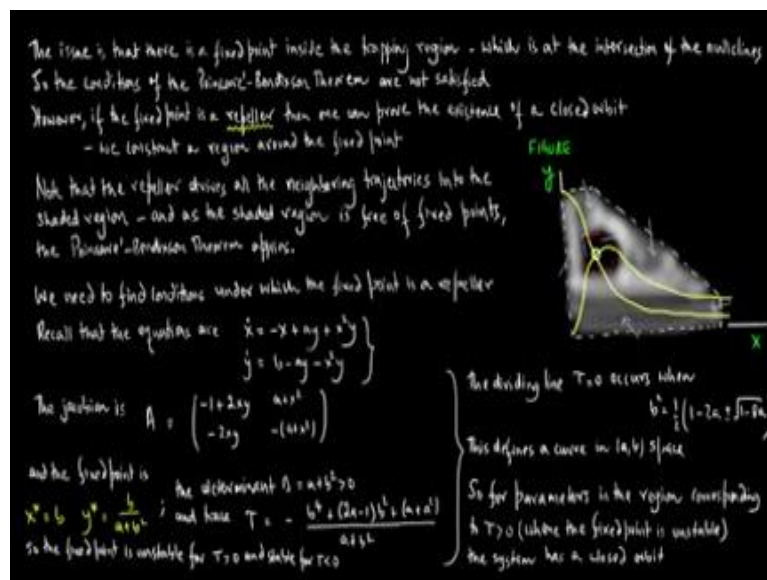 The issue is that there is a fixed point inside the trapping region - which is at the intersection of the nullclines
So the conditions of the Poincaré-Bendixson Theorem are not satisfied
However, if the fixed point is a repeller then one can prove the existence of a closed orbit
- we construct a region around the fixed point
Note that the repeller drives all the neighboring trajectories into the
shaded region - and as the shaded region is free of fixed points,
the Poincaré-Bendixson Theorem applies.
We need to find conditions under which the fixed point is a repeller
Recall that the equations are ẋ = -x + ay + x²y
ẏ = b - ay - x²y
The jacobian is A = ( -1+2xy a+x²
-2xy -(a+x²) )
and the fixed point is
x* = b y* = b/(a+b²) ;
the determinant Δ = a+b² > 0
and trace T = - (b⁴ + (2a-1)b² + (a+a²))/(a+b²)
So the fixed point is unstable for T>0 and stable for T<0
FIGURE
y
x
The dividing line T=0 occurs when
b² = ½(1-2a ± √1-8a
This defines a curve in (a,b) space
So for parameters in the region corresponding
to T>0 (where the fixed point is unstable)
the system has a closed orbit